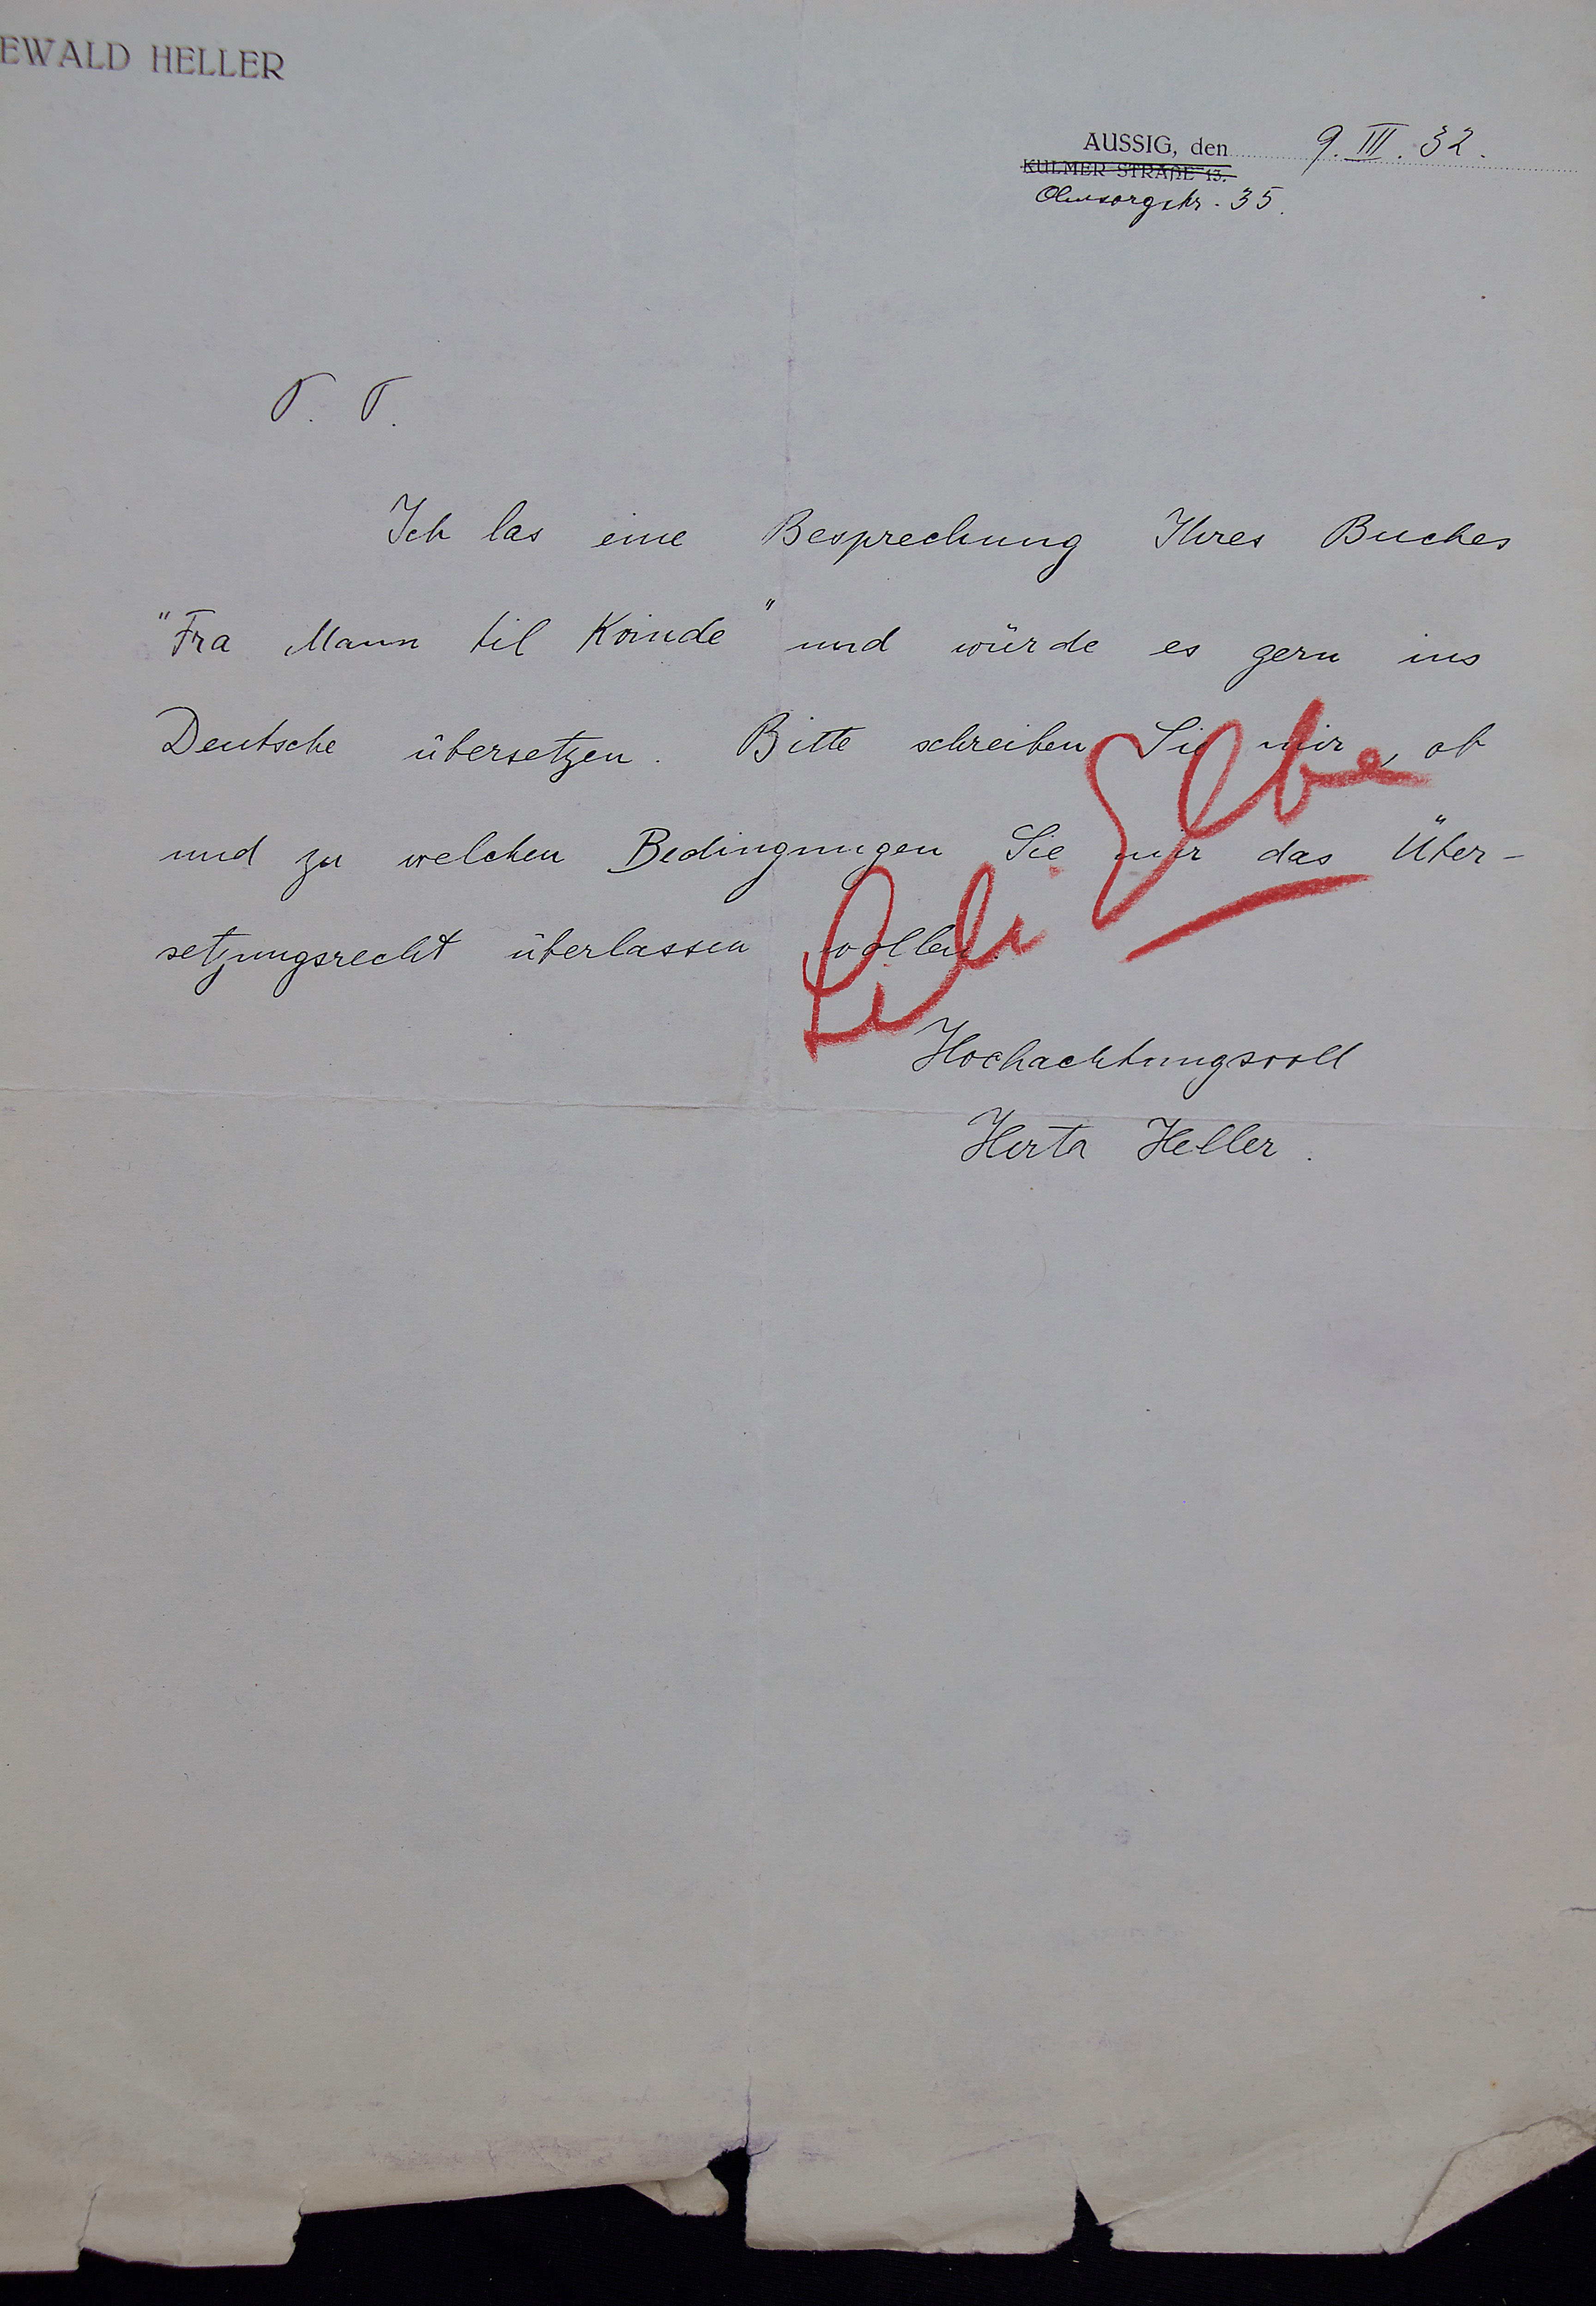 EWALD HELLER
AUSSIG, den 9. III. 32.
KULMER STRAßE 13.
Ohnsorgstr. 35.
P. T.
Ich las eine Besprechung Ihres Buches
"Fra Mann til Kvinde" und würde es gern ins
Deutsche übersetzen. Bitte schreiben Sie mir, ob
und zu welchen Bedingungen Sie mir das Über-
setzungsrecht überlassen wollen.
Lili Elbe
Hochachtungsvoll
Herta Heller.